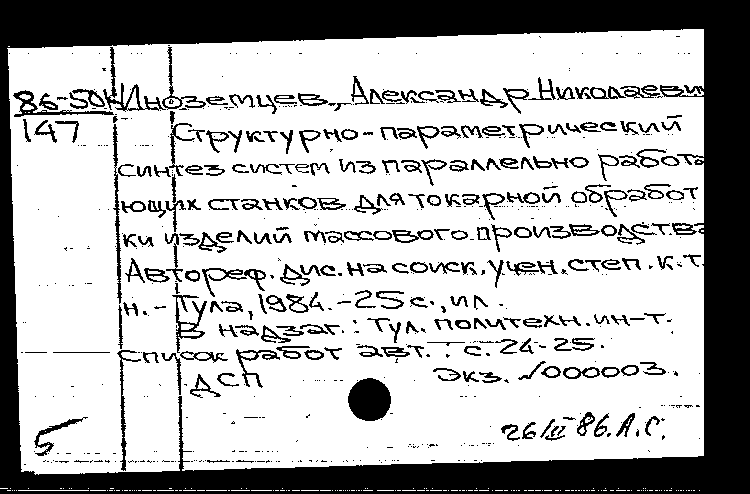 86-50к Иноземцев, Александр Николаевич
147 Структурно-параметрический
синтез систем из параллельно работа
ющих станков для токарной обработ
ки изделий массового производства
Автореф. дис. на соиск. учен. степ. к.т.
н. - Тула, 1984. - 25 с., ил.
В надзаг.: Тул. политехн. ин-т.
Список работ авт.: с. 24-25.
ДСП Экз. №000003.
5 26/II 86. А.С.